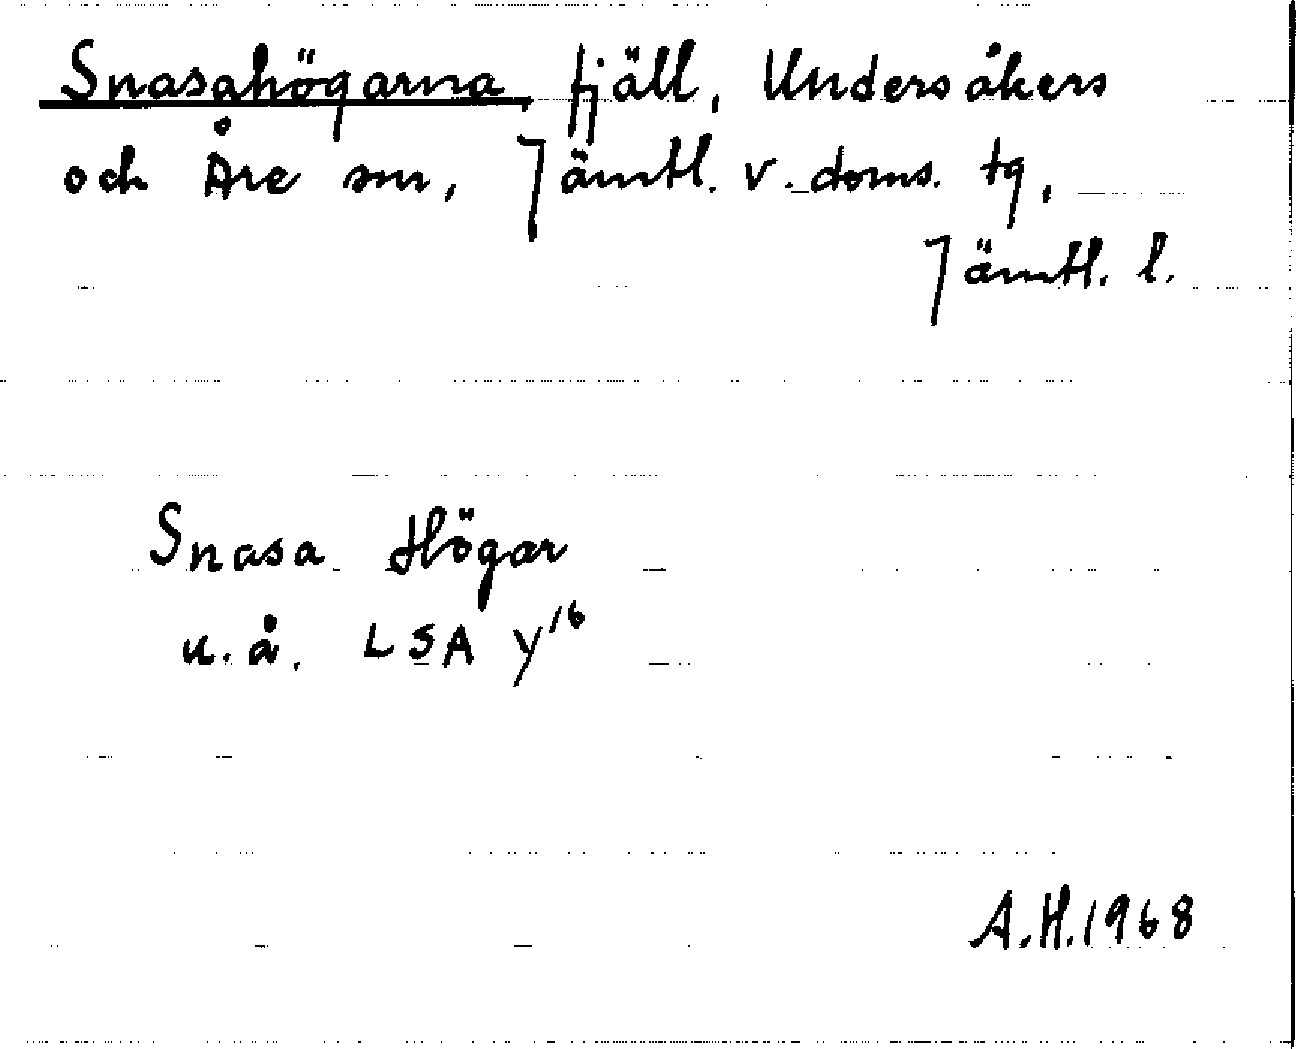 Snasahögarna, fjäll, Undersåkers
och Åre snr, Jämtl. v. doms. tg,
Jämtl. l.
Snasa Högar
u.å. LSA Y16
A.H. 1968